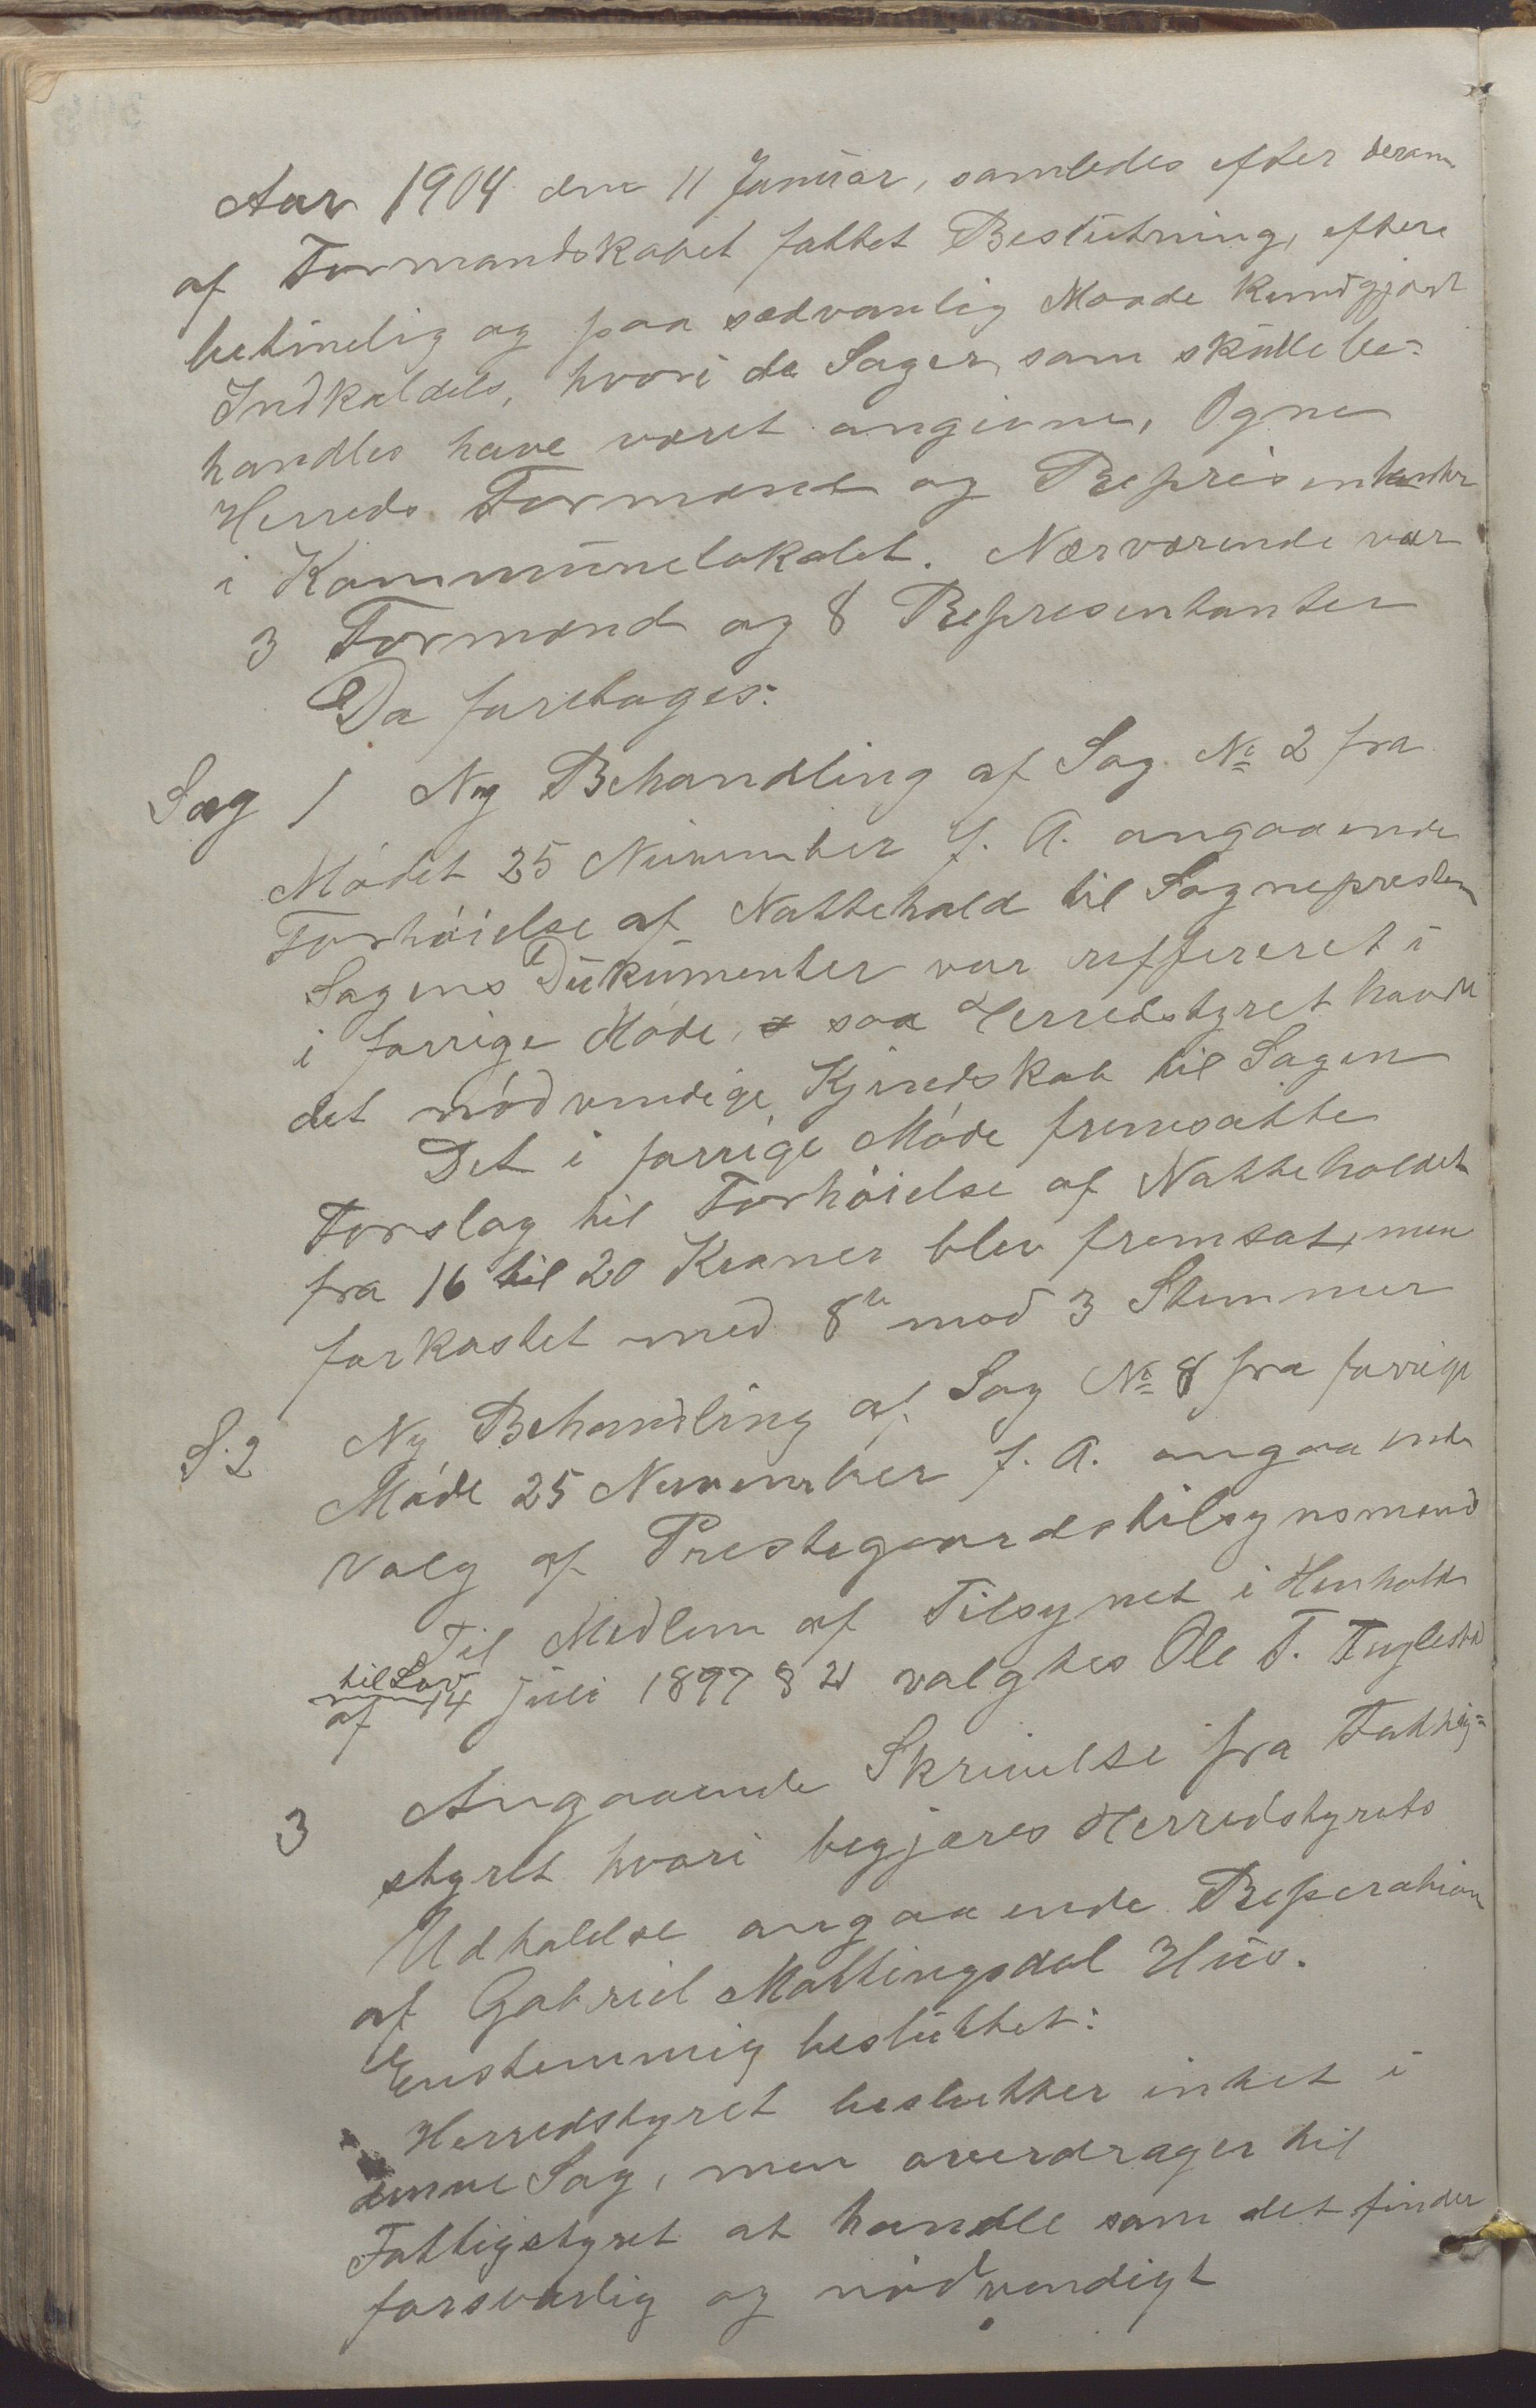 Aar 1904 den 11 Januar, samledes efter derom
af Formandskabet fattet Beslutning, efter
betimelig og paa sædvanlig Maade kundgjort
Indkaldels, hvori de Sager som skulle be=
handles have været angivne, Ogne
Herreds Formænd og Represintanter
i Kommunelokalet. Nærværende var
3 Formænd og 8 Representanter
Da foretoges:
Sag 1 Ny Behandling af Sag No 2 fra
Mødet 25 November f. A. angaaende
Forhøielse af Nattehold til Sognepresten
Sagens Dukumenter var reffereret i
i forrige Møde, saa Herredstyret havde
det nødvendige Kjendskab til Sagen
Det i forrige Møde fremsatte
Forslag til Forhøielse af Natteholdet
fra 16 til 20 Kroner blev fremsat, men
forkastet med 8 mod 3 Stemmer
S. 2 Ny Behandling af Sag No 8 fra forrige
Møde 25 November f. A. angaaende
valg af Prestegaardstilsynsmænd
Til Medlem af Tilsynet i Henhold
til Lov
af 14 juli 1897 § 21 valgtes Ole T.
3 Angaaende Skrivelse fra Fattig=
styret hvori begjæres Herredstyrets
Udtalelse angaaende Reperation
af Gabriel Mattingsdal Hus.
Enstemmig besluttet:
Herredstyret beslutter intet i
denne Sag, men overdrager til
Fattigstyret at handle som det finder
forsvarlig og nødvendigt